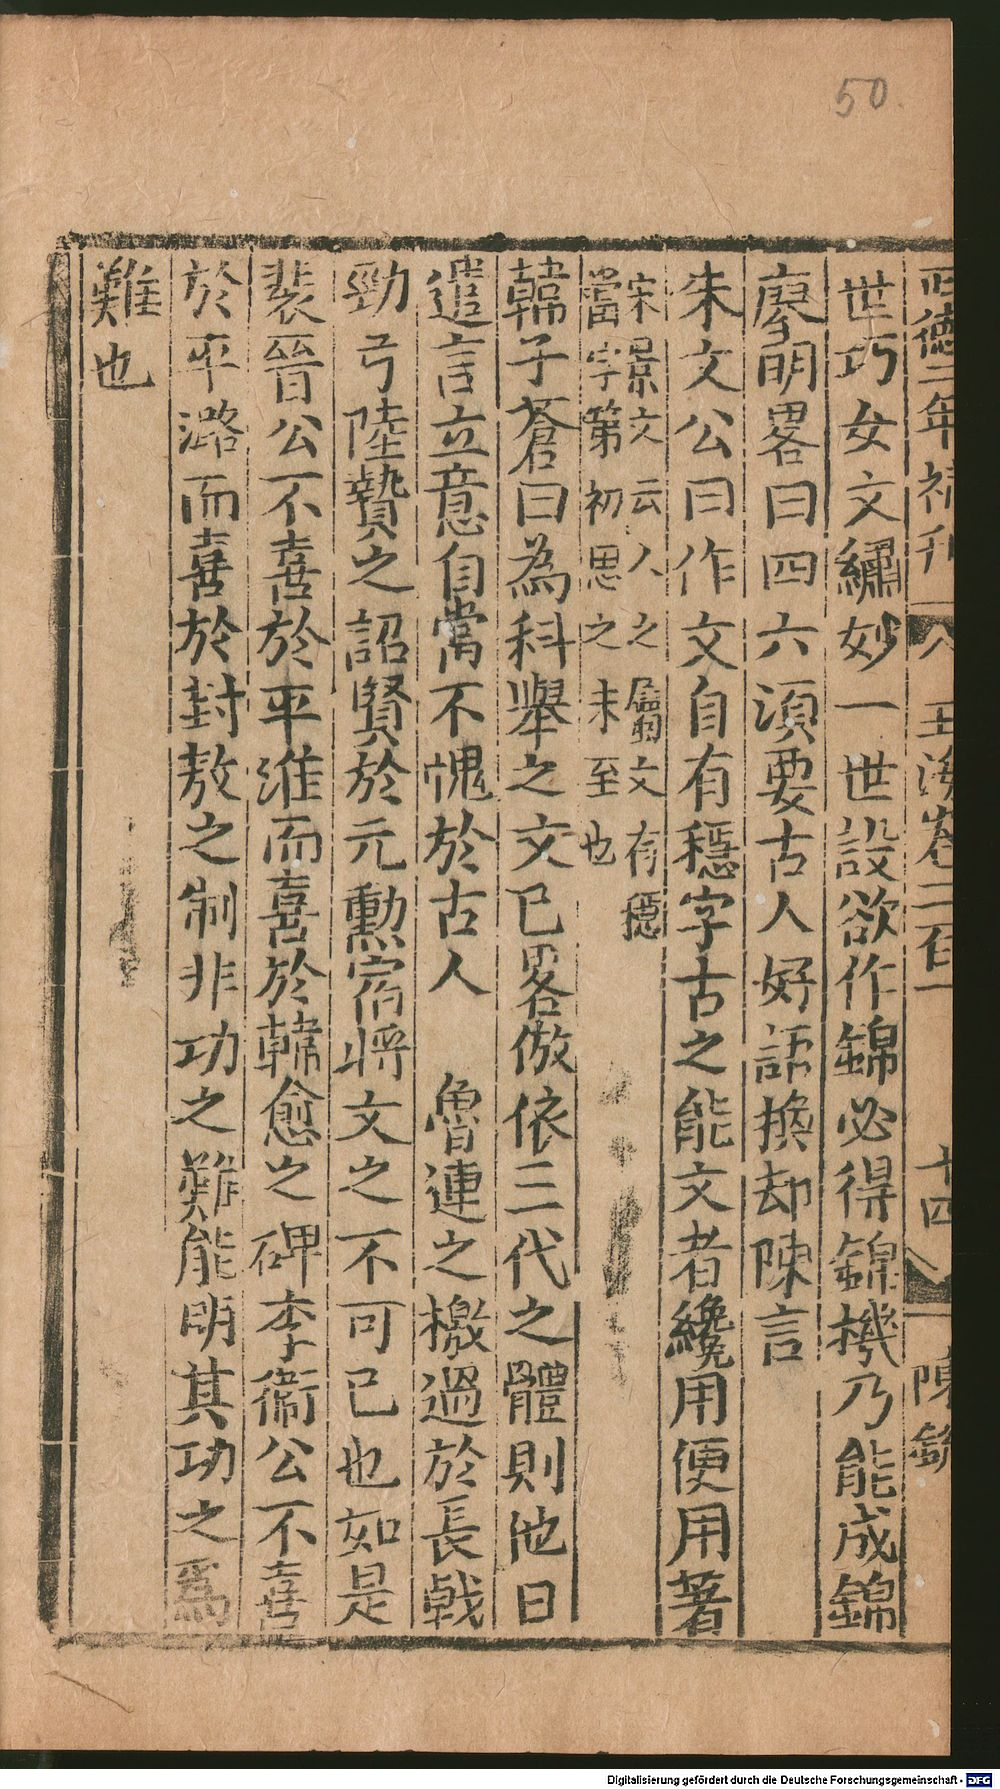 50
正德二年補刋 玉海卷二百一 十四 陳
世巧女文繡妙一世設欲作錦必得錦機乃能成錦
廖明畧曰四六須要古人好語換却陳言
朱文公曰作文自有穩字古之能文者纔用便用著
宋景文云人之屬文有穩
當字第初思之未至也
韓子蒼曰為科舉之文已畧倣依三代之體則他日
遣言立意自當不愧於古人　魯連之檄過於長戟
勁弓陸贄之詔賢於元勳宿將文之不可已也如是
裴晉公不喜於平淮而喜於韓愈之碑李衞公不喜
於平潞而喜於封敖之制非功之難能明其功之為
難也
Digitalisierung gefördert durch die Deutsche Forschungsgemeinschaft - DFG